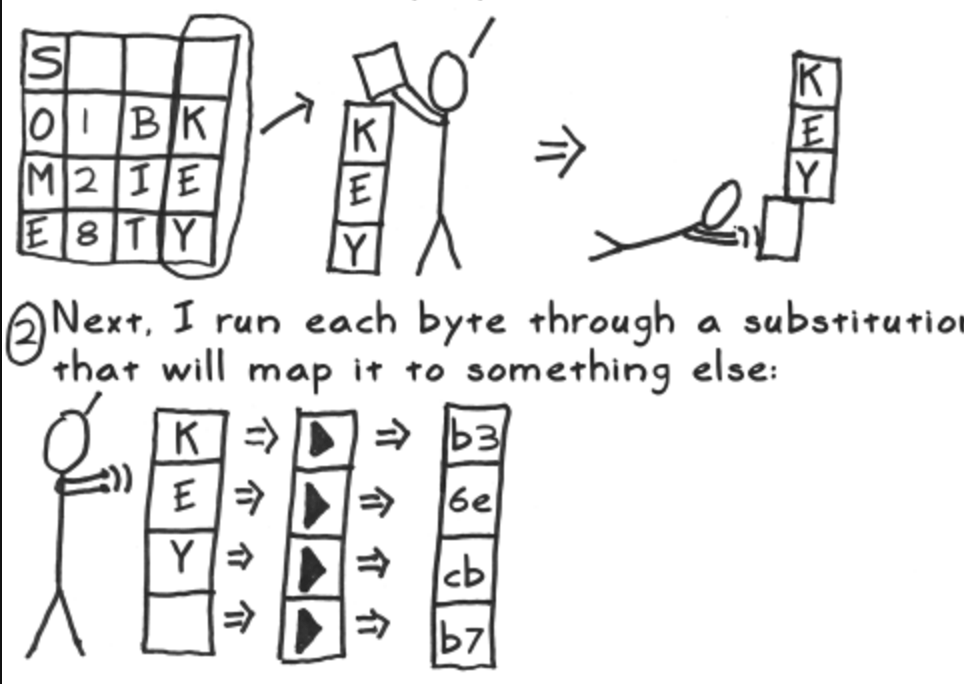 S
O 1 B K
M 2 I E
E 8 T Y
K
E
Y
K
E
Y
2 Next, I run each byte through a substitution
that will map it to something else:
K b3
E 6e
Y cb
b7